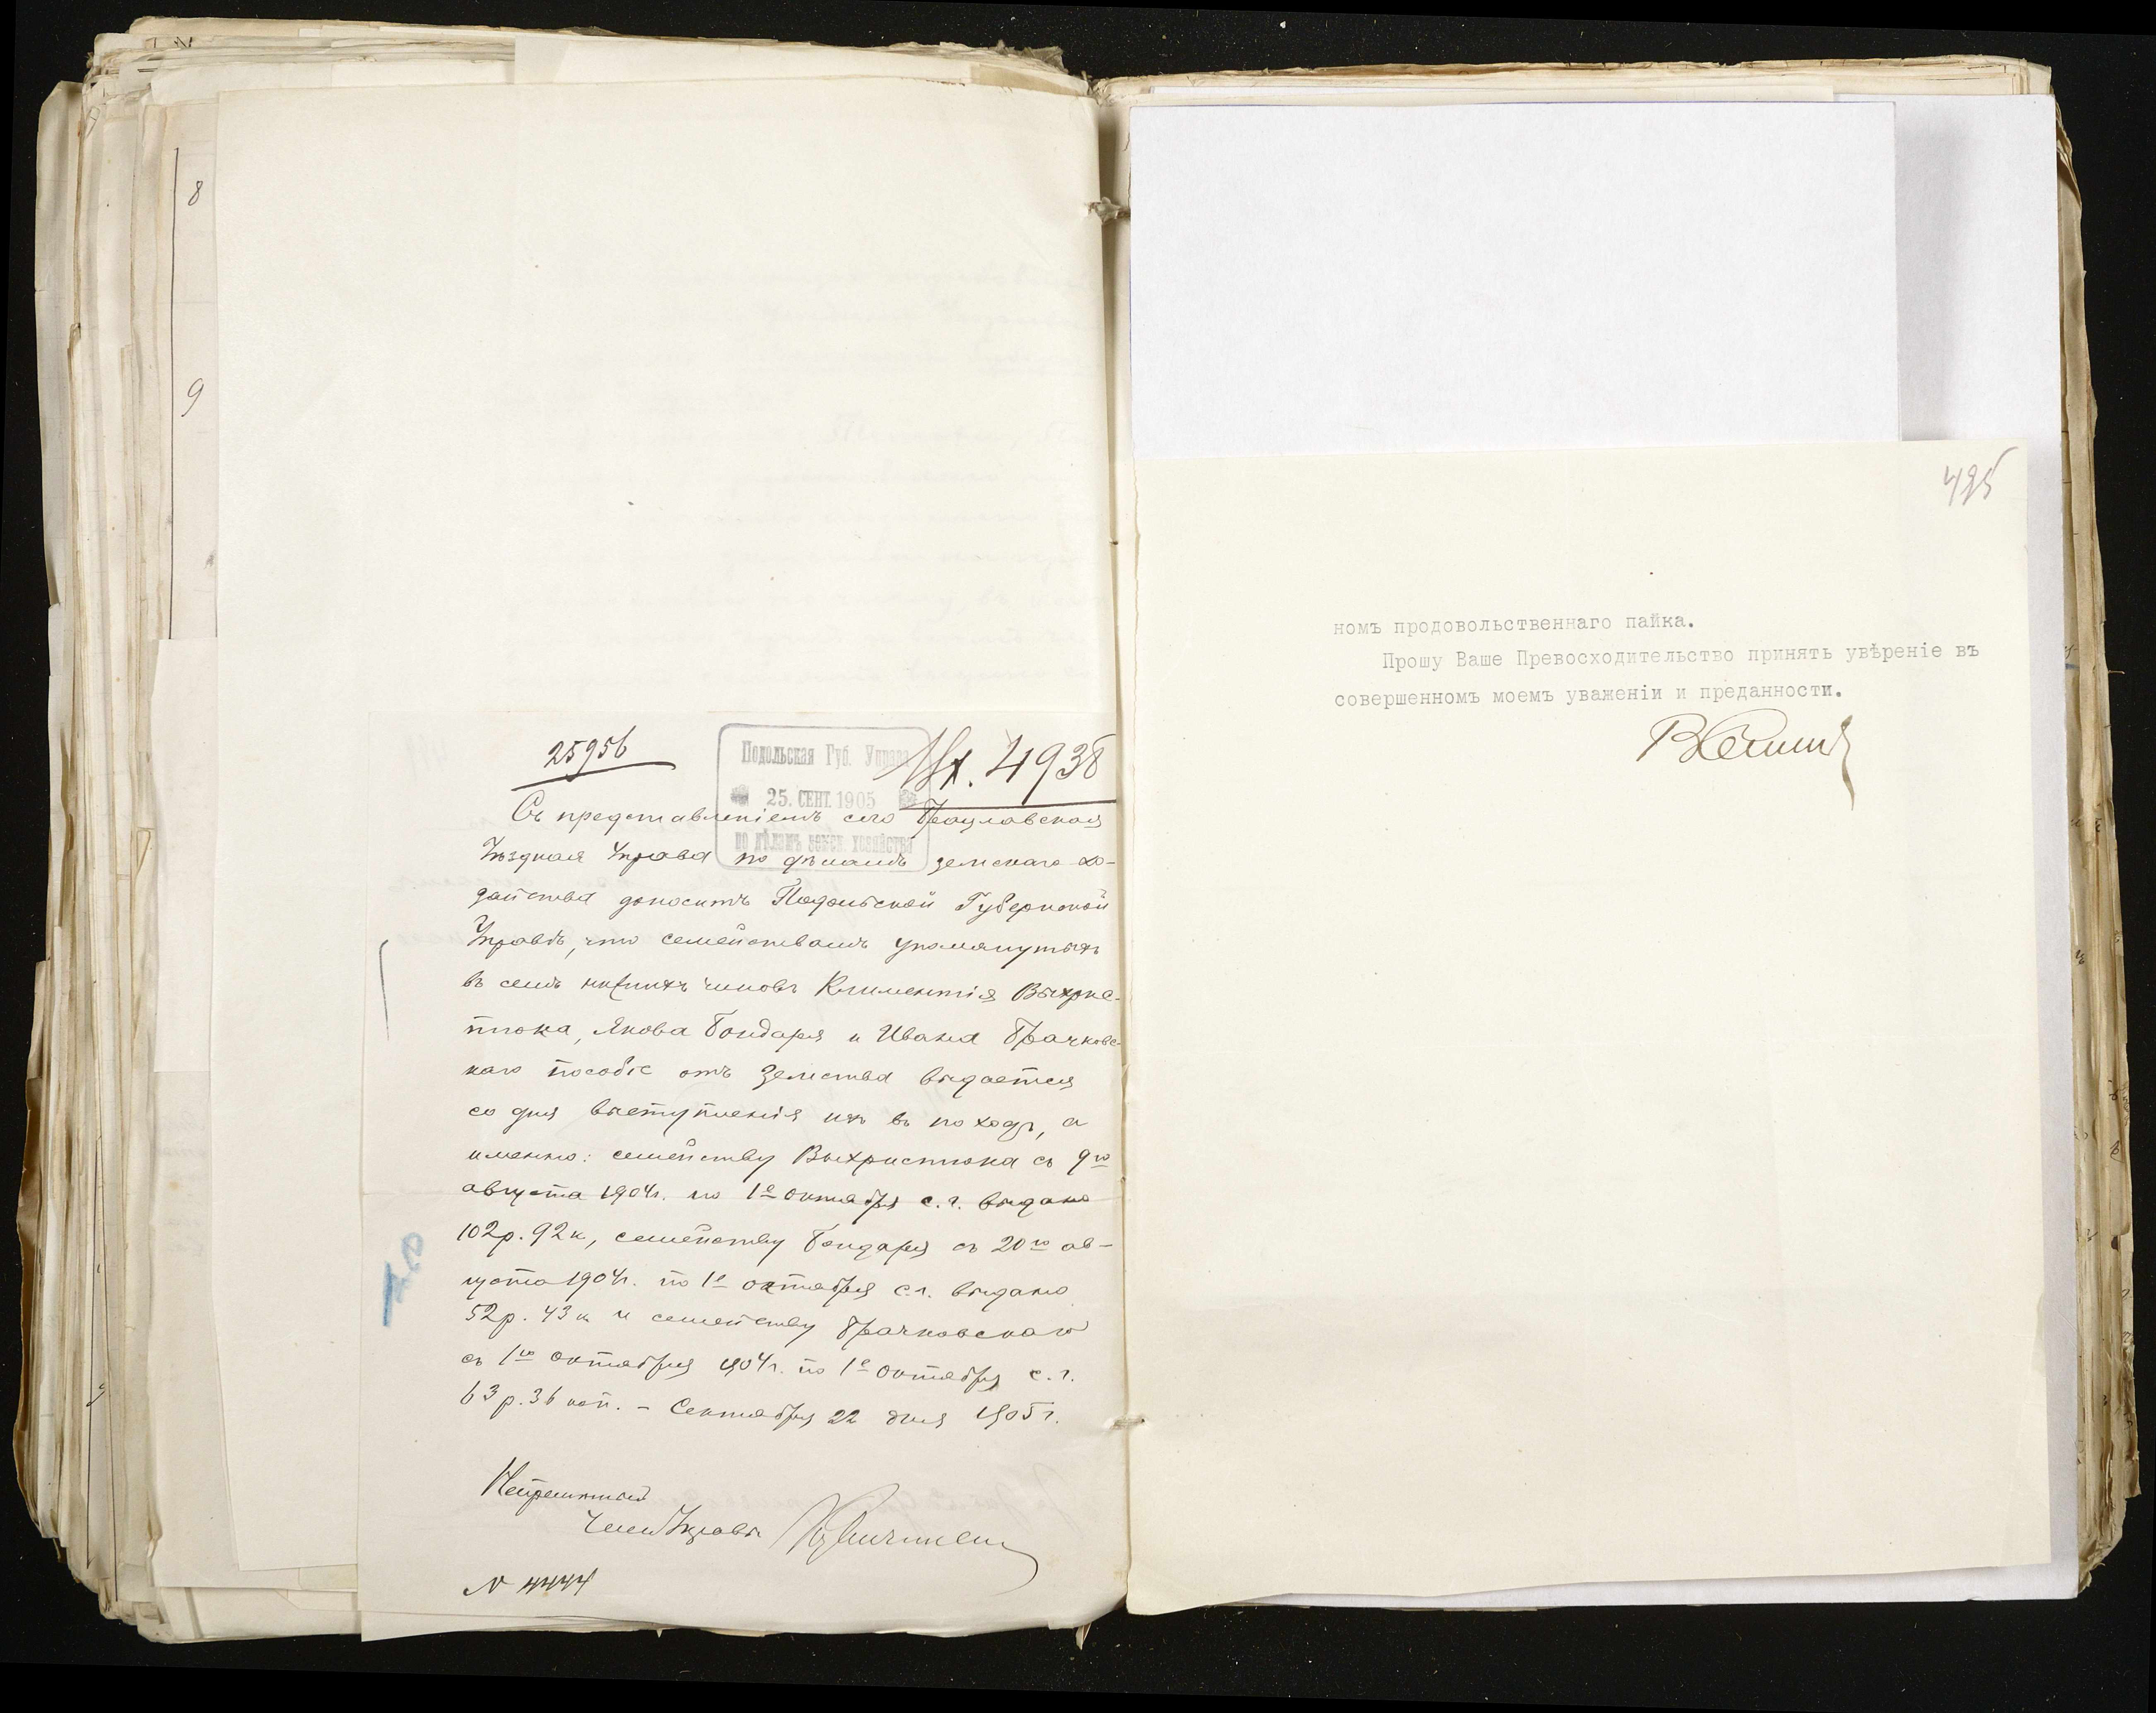 8
9
25956
Подольская Губ. Управа
25. СЕНТ. 1905
по дѣламъ земск. хозяйства
Вх. 4938
Съ представленіемъ сего Брацлавская
Уѣздная Управа по дѣламъ земскаго хо-
зяйства доноситъ Подольской Губернской
Управѣ, что семействамъ упомянутыхъ
въ семъ нижнихъ чиновъ Климентія Выхрис-
тюка, Якова Бондаря и Ивана Брачковс-
каго пособіе отъ земства выдается
со дня выступленія ихъ въ походъ, а
именно: семейству Выхристюка съ 9го
августа 1904г. по 1е октября с.г. выдано
102р. 92к, семейству Бондаря съ 20го ав-
густа 1904г. по 1е октября с.г. выдано
52р. 43к и семейству Брачковскаго
съ 1го октября 1904г. по 1е октября с.г.
63р. 36 коп. - Сентября 22 дня 1905г.
Непремѣнный
Членъ Управы
N 4444
495
номъ продовольственнаго пайка.
Прошу Ваше Превосходительство принять увѣреніе въ
совершенномъ моемъ уваженіи и преданности.